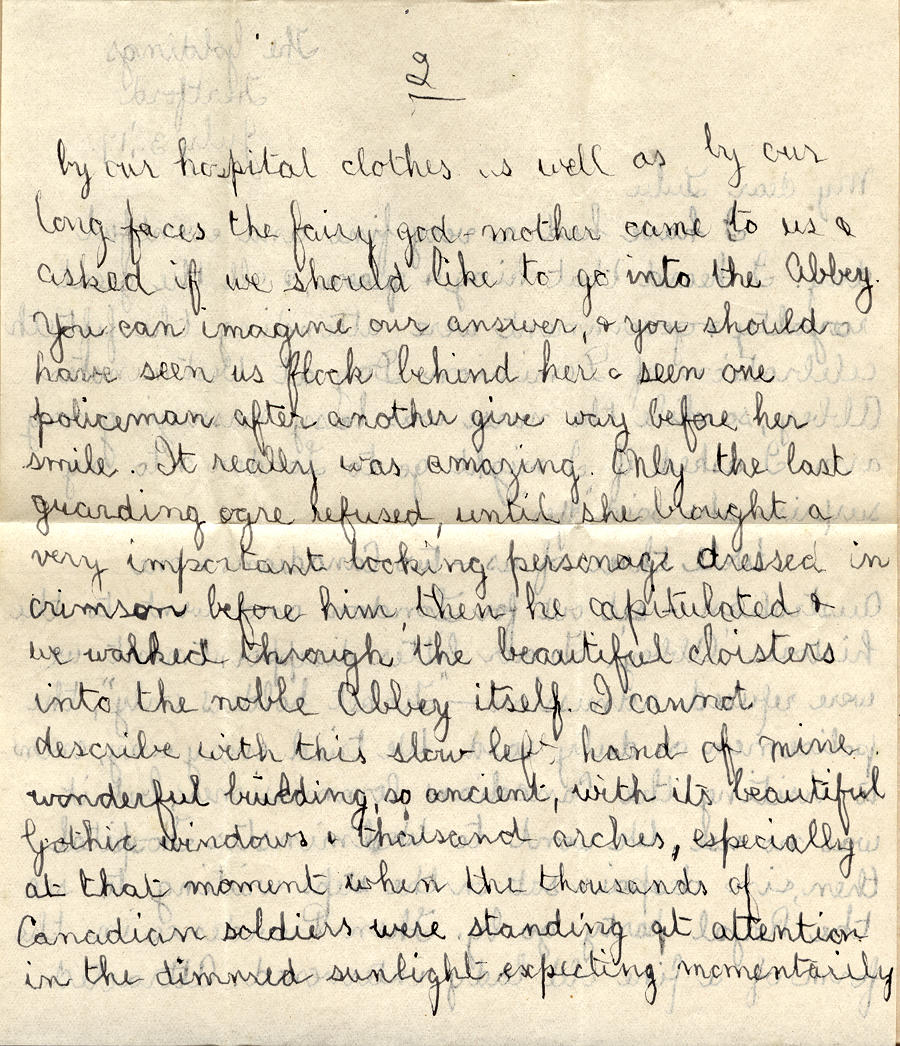 2
by our hospital clothes as well as by our
long faces the fairy god-mother came to us &
asked if we should like to go into the Abbey.
You can imagine our answer, & you should
have seen us flock behind her & seen one
policeman after another give way before her
smile. It really was amazing. Only the last
guarding ogre refused, until she brought a
very important looking personage dressed in
crimson before him, then he capitulated &
we walked through the beautiful cloisters
into the noble Abbey itself. I cannot
describe with this slow left hand of mine
wonderful building, so ancient, with its beautiful
Gothic windows & thousand arches, especially
at that moment when the thousands of
Canadian soldiers were standing at attention
in the dimmed sunlight expecting momentarily